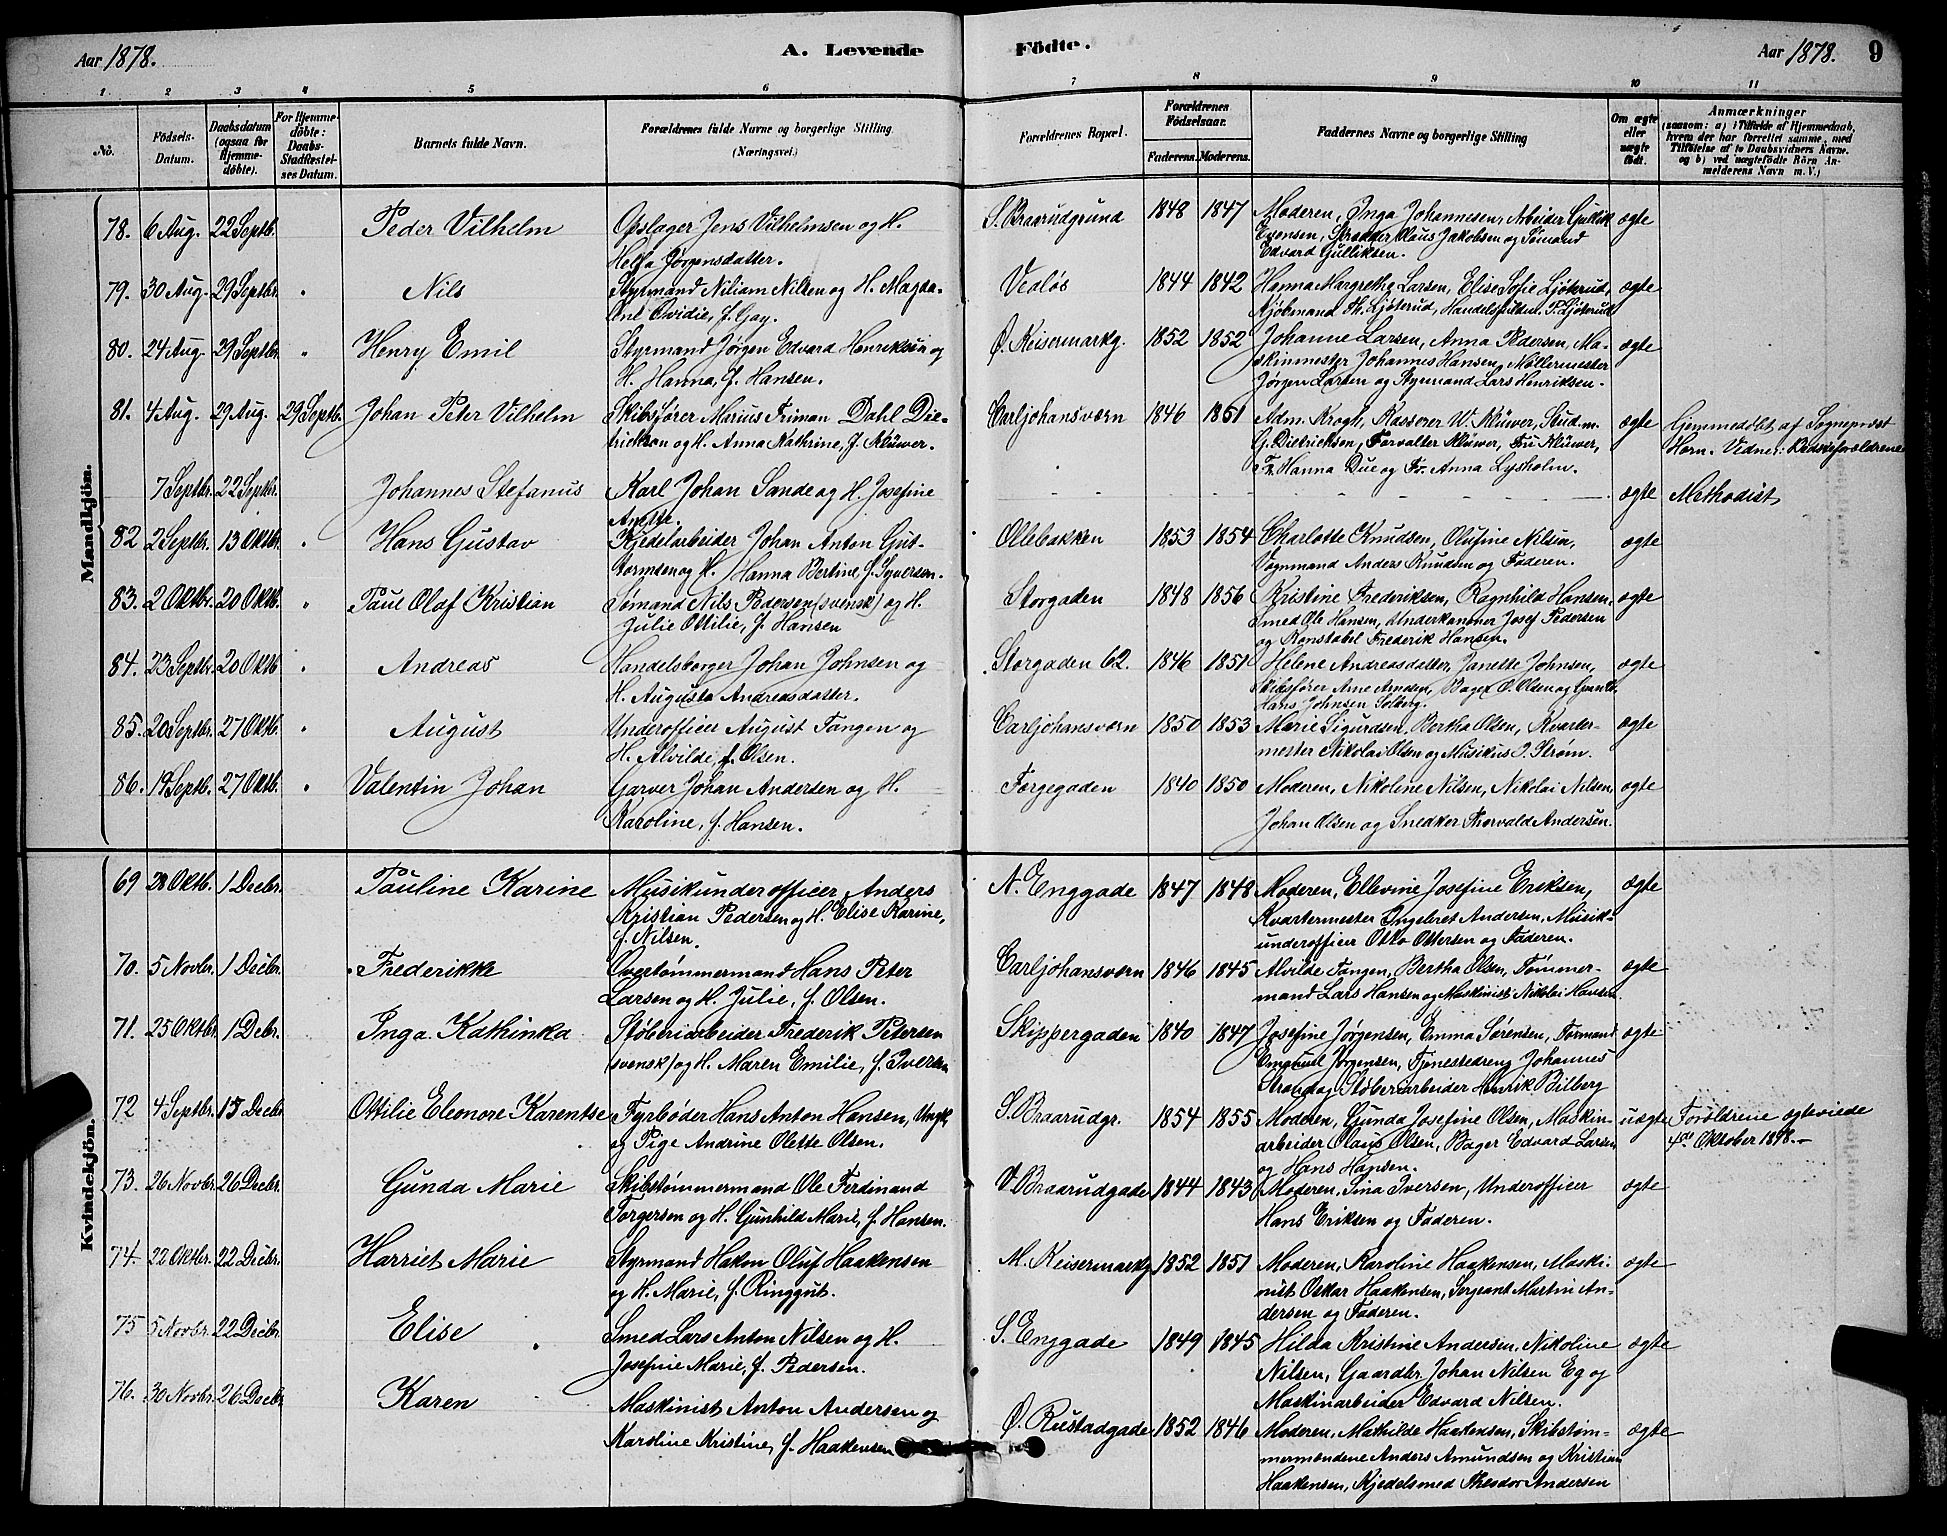 Aar 1878. A. Levende Födte. Aar 1878. 9
1 2 3 4 5 6 7 8 9 10 11
No. Födsels-Datum. Daabsdatum (ogsaa for Hjemme-döbte). For Hjemme-döbte: Daabs-Stadfæstel-ses Datum. Barnets fulde Navn. Forældrenes fulde Navne og borgerlige Stilling. (Næringsvei.) Forældrenes Bopæl. Forældrenes Födselsaar. Faderens. Moderens. Faddernes Navne og borgerlige Stilling Om ægte eller uægte födt. Anmærkninger
(saasom: a) i Tilfælde af Hjemmedaab,
hvem der har forrettet samme, med
Tilföielse af to Daabsvidners Navne.
og b) ved uægtefödte Börn An-
melderens Navn m. V.)
Mandkjön.
78. 6 Aug. 22 Septb. Peder Vilhelm Opslager Jens Vilhelmsen og H. S. Braarudgrund 1848 1847 Moderen, Inga Johannesen, Arbeider Gullik ægte
Helga Jørgensdatter. Evensen, Skrædder Claus Jakobsen og Sømand
Edvard Gulliksen.
79. 30 Aug. 29 Septbr. " Nils Styrmand Niliam Nilsen og H. Magda- Vealøs 1844 1842 Hanna Margrethe Larsen, Elise Sofie Ljøterud, ægte
lene Ovidie, f. Gay. Kjøbmand Th. Ljøterud, Handelsfuldm. P. Ljøterud
80. 24 Aug. 29 Septbr. " Henry Emil Styrmand Jørgen Edvard Henriksen og Ø. Keisermarkg. 1852 1852 Johanne Larsen, Anna Pedersen, Ma- ægte
H. Hanna, f. Hansen. skinmester Johannes Hansen, Møllermester
Jørgen Larsen og Styrmand Lars Henriksen.
81. 4 Aug. 29 Aug. 29 Septb. Johan Peter Vilhelm Skibsfører Marius Friman Dahl Die- Carljohansværn 1846 1851 Adm. Krogh, Kasserer W. Kluwer, Stud. m. ægte Hjemmedøbt af Sogneprest
trichson og H. Anna Kathrine, f. Kluwer. G. Dietrichson, Forvalter Kluwer, Fru Kluwer, Horn. Vidner: Bedsteforældrene
Fr. Hanna Due og Fr. Anna Lysholm.
7 Septbr. 22 Septbr. Johannes Stefanus Karl Johan Sande og H. Josefine ægte Methodist
Anette.
82 2 Septbr. 13 Oktbr. " Hans Gustav Kjedelarbeider Johan Anton Gut- Ollebakken 1853 1854 Charlotte Knudsen, Olufine Nilsen, ægte
tormsen og H. Hanna Bertine, f. Syversen. Vognmand Anders Knudsen og Faderen.
83. 2 Oktbr. 20 Oktb. " Paul Olaf Kristian Sømand Nils Pedersen (svensk) og H. Storgaden 1848 1856 Kristine Frederiksen, Ragnhild Hansen, ægte
Julie Ottilie, f. Hansen Smed Ole Hansen, Underkanoner Josef Pedersen
og Konstabel Frederik Hansen.
84. 23 Septbr. 20 Oktb " Andreas Handelsborger Johan Johnsen og Storgaden 62. 1846 1851 Helene Andreasdatter, Janette Johnsen, ægte
H. Augusta Andreasdatter. Skibsfører Arne Arndsen, Bager O. Olsen og
Hans Johnsen Solberg.
85. 20 Septbr. 27 Oktb. " August Underofficer August Tangen og Carljohansværn 1850 1853 Marie Sigurdsen, Bertha Olsen, Kvarter- ægte
H. Alvilde, f. Olsen. mester Nikolai Olsen og Musikus O. Strøm.
86. 19 Septb. 27 Oktb. " Valentin Johan Garver Johan Andersen og H. Torgegaden 1840 1850 Moderen, Nikoline Nilsen, Nikolai Nilsen, ægte
Karoline, f. Hansen. Johan Olsen og Snedker Thorvald Andersen.
Kvindekjön.
69 28 Oktb. 1 Decbr. Pauline Karine Musikunderofficer Anders N. Enggade 1847 1848 Moderen, Ellevine Josefine Eriksen, ægte
Kristian Pedersen og H. Elise Karine, Kvartermester Ingebret Andersen, Musik-
f. Nilsen. underofficer Otto Ottersen og Faderen.
70. 5 Novbr. 1 Decbr. Frederikke Overtømmermand Hans Peter Carljohansværn 1846 1845 Alvilde Tangen, Bertha Olsen, Tømmer- ægte
Larsen og H. Julie, f. Olsen. mand Lars Hansen og Maskinist Nikolai Hansen.
71. 25 Oktbr. 1 Decbr. Inga Kathinka Støberiarbeider Frederik Petersen Skippergaden 1840 1847 Josefine Jørgensen, Emma Sørensen, Formand ægte
(svensk) og H. Maren Emilie, f. Iversen Emanuel Jørgensen, Tjenestedreng Johannes
Strand og Støberiarbeider Henrik Bilberg
72 4 Septbr. 15 Decbr. Ottilie Eleonore Karentse Fyrbøder Hans Anton Hansen, Ungk, S. Braarudgr. 1854 1855 Moderen, Gunda Josefine Olsen, Maskin- uægte Forældrene ægteviede
og Pige Andrine Olette Olsen. arbeider Olaus Olsen, Bager Edvard Larsen 4de Oktober 1898.-
og Hans Hansen.
73. 26 Novbr. 26 Decbr. Gunda Marie Skibstømmermand Ole Ferdinand V. Braarudgade 1844 1843 Moderen, Sina Iversen, Underofficer ægte
Torgersen og H. Gunhild Marie, f. Hansen. Hans Eriksen og Faderen.
74. 22 Oktbr. 22 Decbr. Harriet Marie Styrmand Hakon Oluf Haakensen M. Keisermarkg 1852 1851 Moderen, Karoline Haakensen, Maski- ægte
og H. Marie, f. Ringgut. nist Oskar Haakensen, Sergeant Martin An-
dersen og Faderen.
75 5 Novbr. 22 Decbr. Elise Smed Lars Anton Nilsen og H. S. Enggade 1849 1845 Hilda Kristine Andersen, Nikoline ægte
Josefine Marie, f. Pedersen. Nilsen, Gaardbr. Johan Nilsen Eg og
Maskinarbeider Edvard Nilsen.
76. 30 Novbr. 26 Decbr. Karen Maskinist Anton Andersen og Ø. Rustadgade 1852 1846 Moderen, Mathilde Haakensen, Skibstøm- ægte
Karoline Kristine, f. Haakensen mermændene Anders Amundsen og Kristian
Haakensen, Kjedelsmed Theodor Andersen